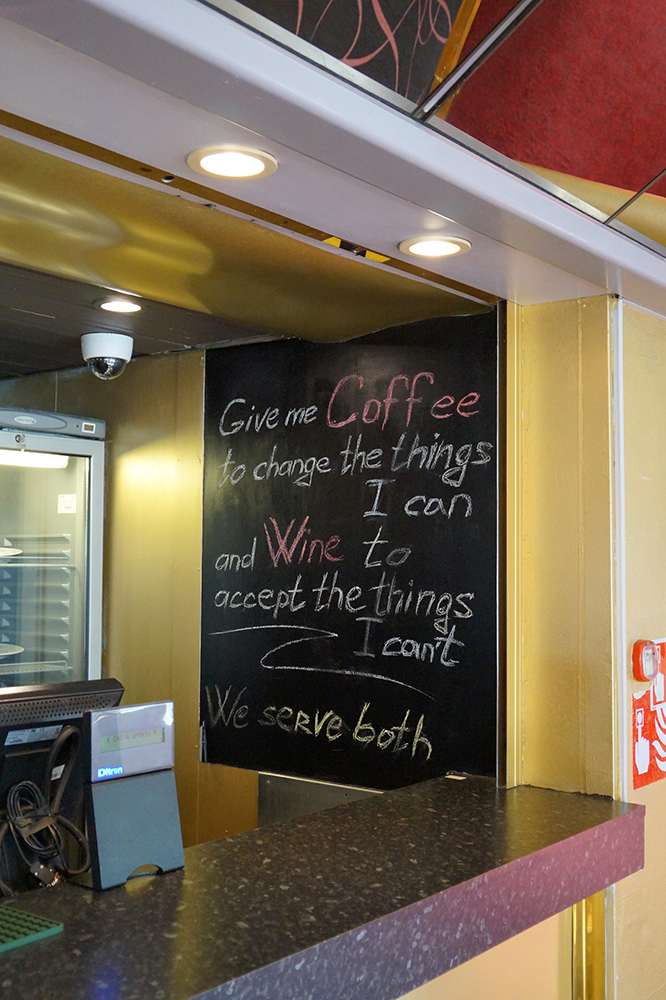 Give me Coffee
to change the things
I can
and Wine to
accept the things
I can't
We serve both
Ditron